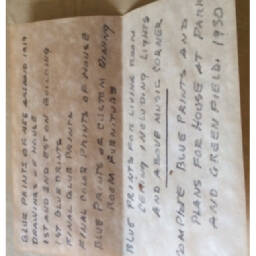 BLUE PRINTS OF
DRAWINGS OF HOUSE
1ST AND 2ND EST ON BUILDING
1ST BLUE PRINTS
FINAL BLUE PRINTS
FINAL COLOR PRINTS OF HOUSE
BLUE PRINTS OF CUSTOM DINING
ROOM FURNITURE
BLUE PRINTS FOR LIVING ROOM
INCLUDING LIGHTS
AND ABOVE MUSIC CORNER
BLUE PRINTS AND
PLANS FOR HOUSE AT PARK
AND GREENFIELD. 1930